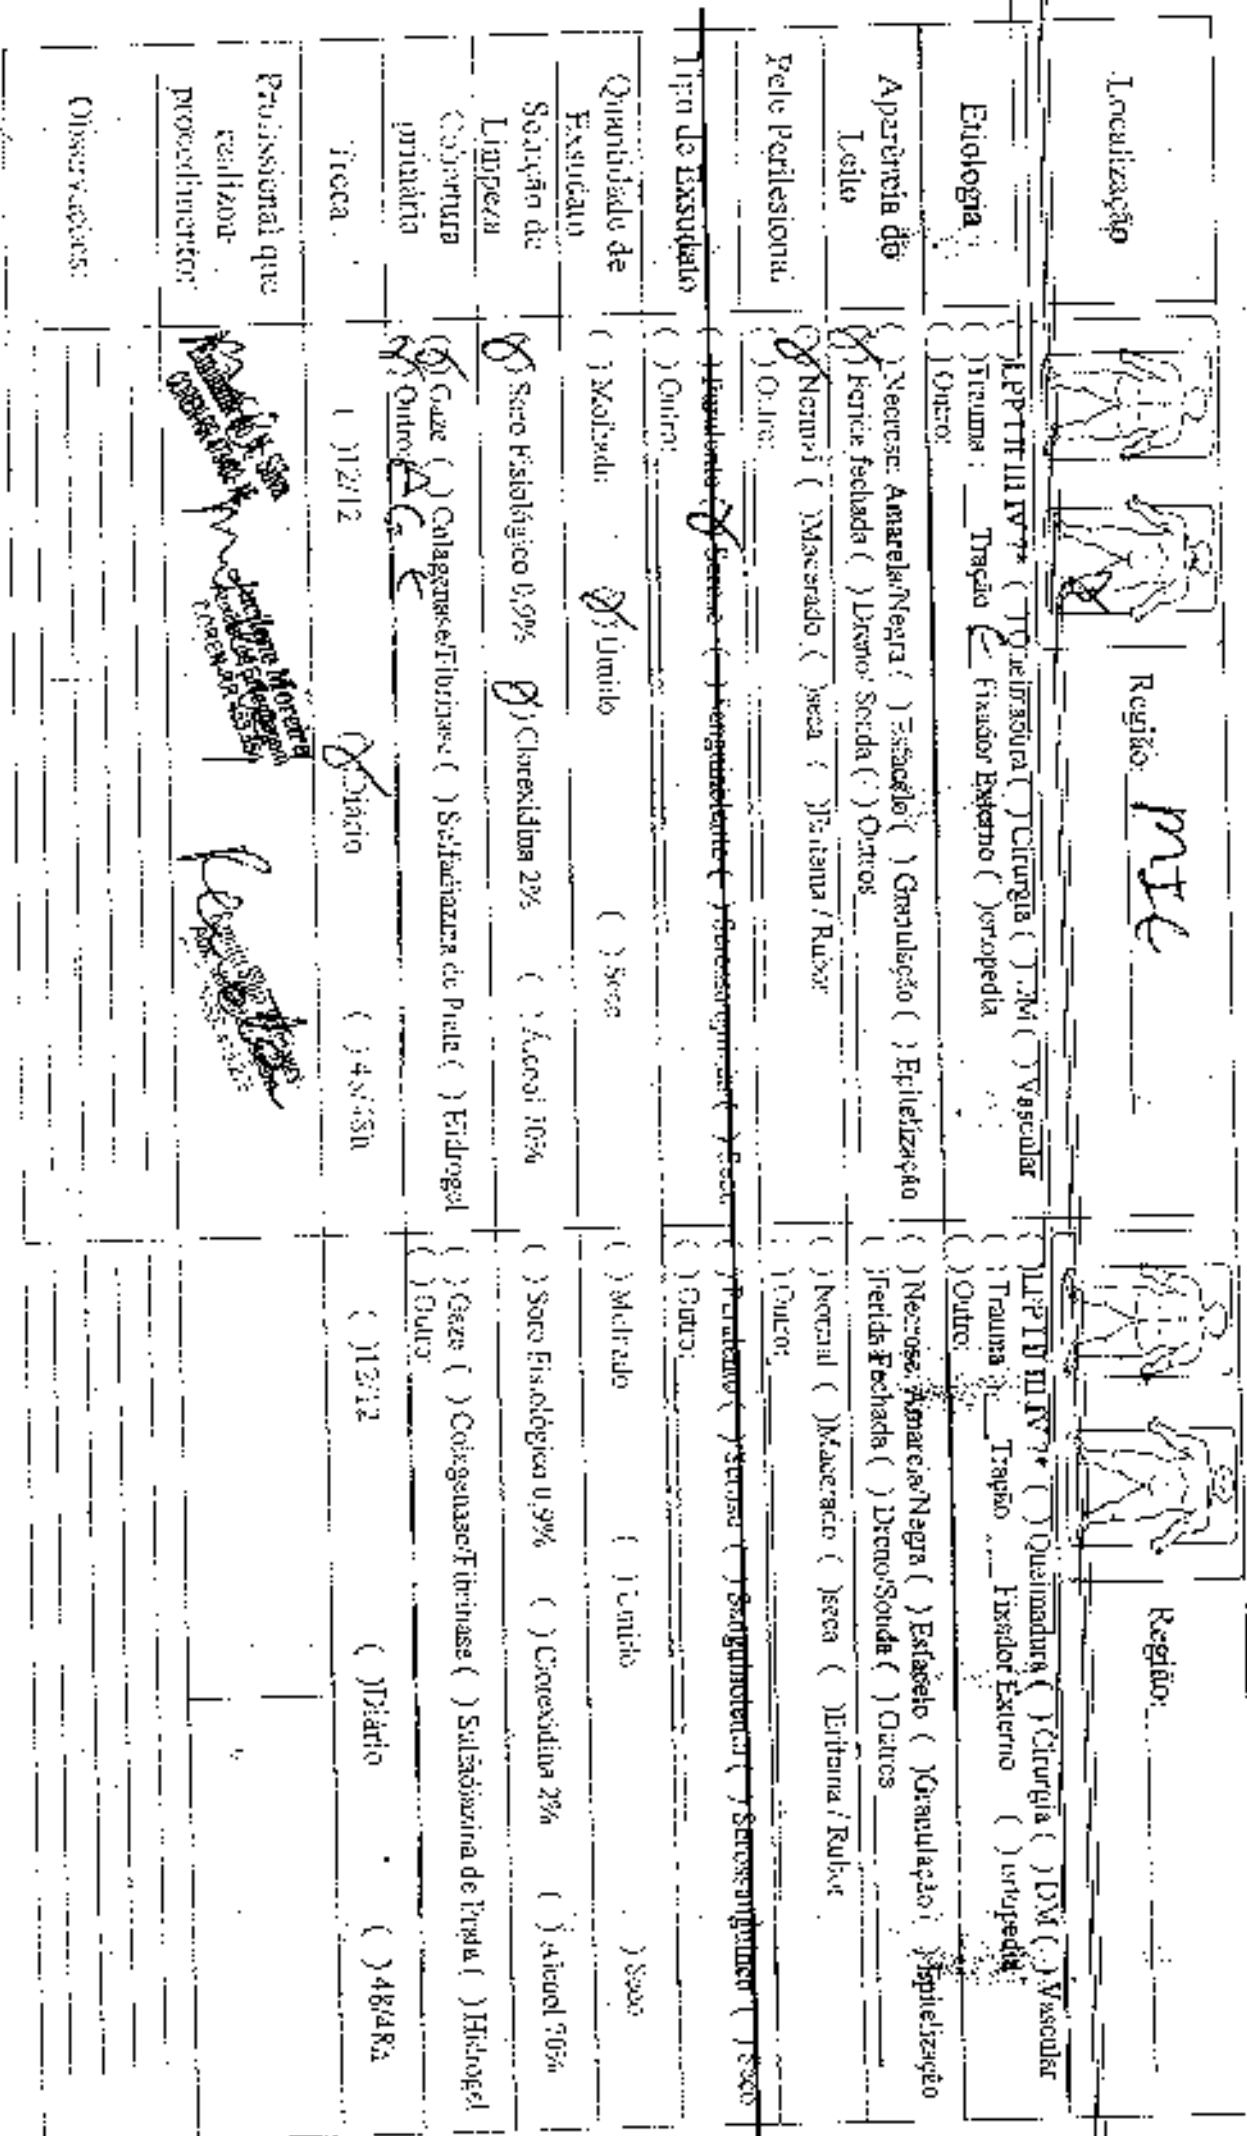 Localização
Região: MIE
Região:
Etiologia
( )LPP I II III IV ?* ( )Queimadura ( )Cirurgia ( )DM ( )Vascular
( )Trauma: __ Tração __ Fixador Externo ( )ortopedia
( )Outro:
( )LPP I II III IV ?* ( )Queimadura ( )Cirurgia ( )DM ( )Vascular
( )Trauma __ Tração __ Fixador Externo ( )ortopedia
( )Outro:
Aparência do
Leito
( )Necrose: Amarela/Negra ( )Esfacelo ( )Granulação ( )Epitelização
Ferida fechada ( )Dreno/Sonda ( )Outros
( )Necrose: Amarela/Negra ( )Esfacelo ( )Granulação ( )Epitelização
( )Ferida Fechada ( )Dreno/Sonda ( )Outros
Pele Perilesional
Normal ( )Macerado ( )seca ( )Eritema / Rubor
( )Outro:
( )Normal ( )Macerado ( )seca ( )Eritema / Rubor
( )Outro:
Tipo de Exsudato
( )Purulento Seroso ( )Sanguinolento ( ) ( )Seco
( )Outro:
( )Purulento ( )Seroso ( )Sanguinolento ( )Serossanguineo ( )Seco
( )Outro:
Quantidade de
Exsudato
( )Molhado Umido ( )Seco
( )Molhado ( )Umido ( )Seco
Solução de
Limpeza
Soro Fisiológico 0,9% Clorexidina 2% ( )Álcool 70%
( )Soro Fisiológico 0,9% ( )Clorexidina 2% ( )Álcool 70%
Cobertura
primária
Gaze ( )Colagenase/Fibrinase ( )Sulfadiazina de Prata ( )Hidrogel
Outro: AGE
( )Gaze ( )Colagenase/Fibrinase ( )Sulfadiazina de Prata ( )Hidrogel
( )Outro:
Troca
( )12/12 Diário ( )48/48h
( )12/12 ( )Diário ( )48/48h
Profissional que
realizou
procedimento:
Silva
Moreira
COREN
Observações: